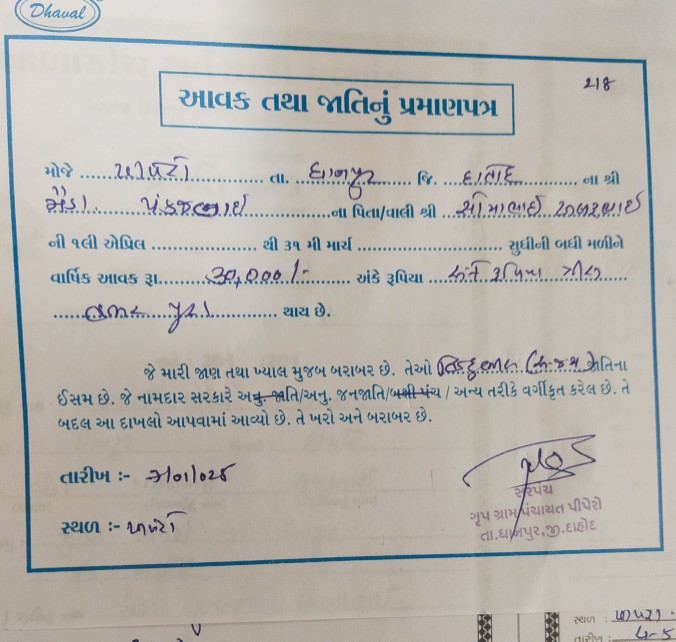 Dhaval
218
આવક તથા જાતિનું પ્રમાણપત્ર
મોજે ............ પીપેરો ............ તા. ...... ધાનપુર ...... જિ. .... દાહોદ ........ ના શ્રી
મેડા. પંકજભાઈ ............ના પિતા/વાલી શ્રી ... સીમાભાઈ
ની ૧લી એપ્રિલ ................ થી ૩૧ મી માર્ચ ...................... સુધીની બધી મળીને
વાર્ષિક આવક રૂા......... 30,000/- ...... અંકે રૂપિયા ... રૂપિયા ત્રીસ ......
..... હજાર પુરા ............ થાય છે.
જે મારી જાણ તથા ખ્યાલ મુજબ બરાબર છે. તેઓ હિન્દુ જાતિના
ઈસમ છે. જે નામદાર સરકારે અનુ. જાતિ/અનુ. જનજાતિ/બક્ષી પંચ / અન્ય તરીકે વર્ગીકૃત કરેલ છે. તે
બદલ આ દાખલો આપવામાં આવ્યો છે. તે ખરો અને બરાબર છે.
તારીખ :-
સરપંચ
ગૃપ ગ્રામ પંચાયત પીપેરો
સ્થળ :- પીપેરો
તા.ધાનપુર,જી.દાહોદ
સ્થળ :
તારીખ :